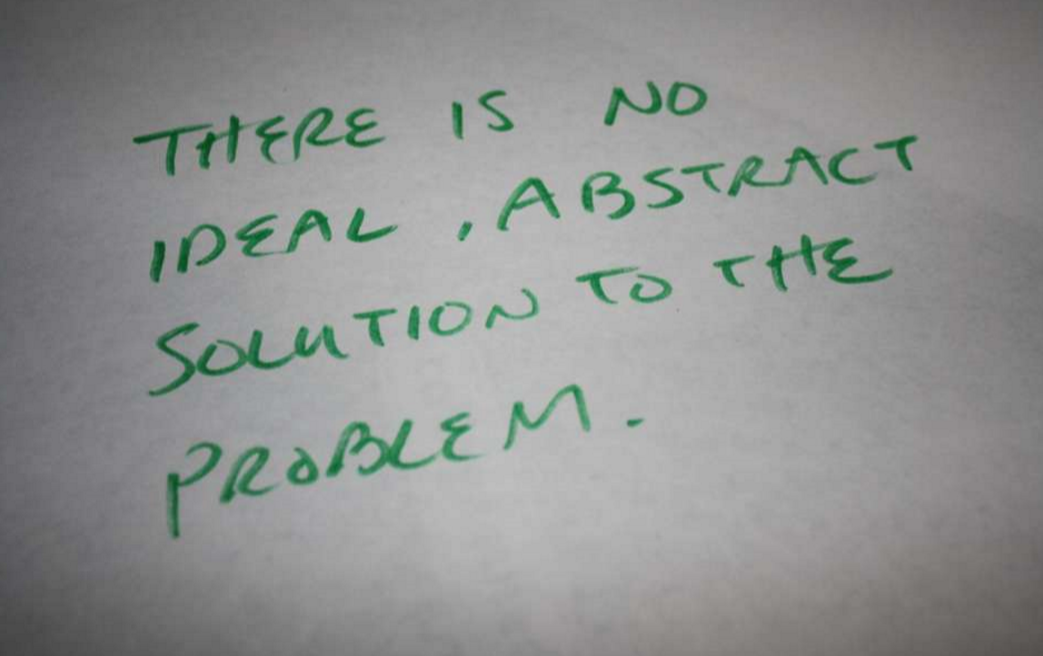 THERE IS NO
IDEAL, ABSTRACT
SOLUTION TO THE
PROBLEM.